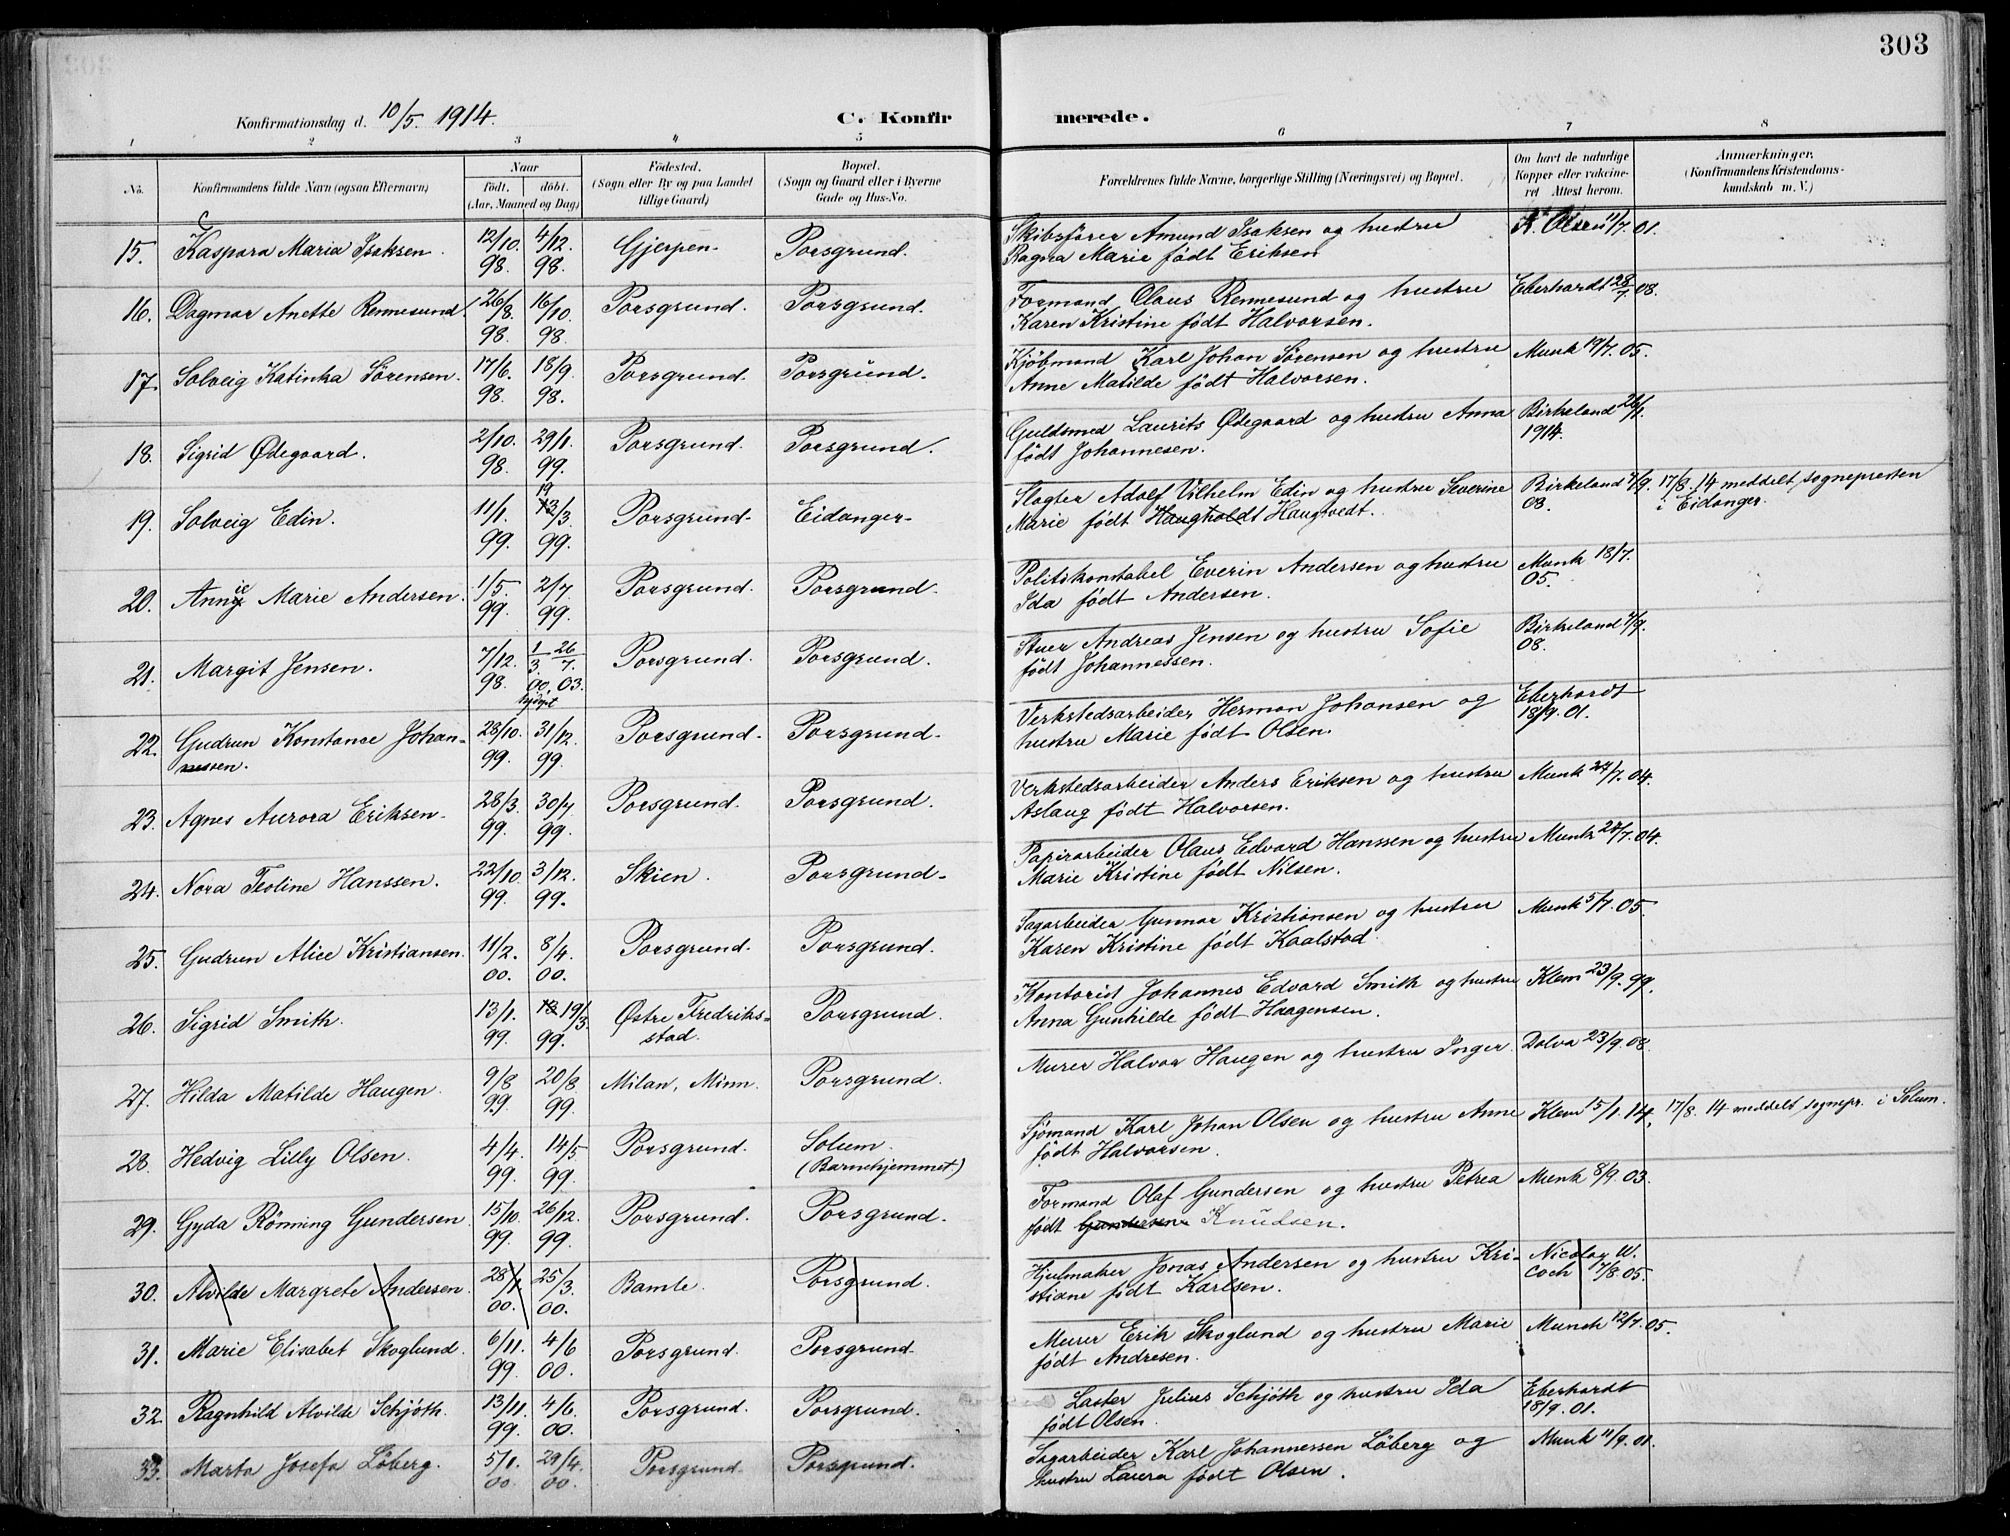 303
Konfirmationsdag d. 10/5. 1914.
C. Konfir merede.
1 2 3 4 5 6 7 8
No.
Konfirmandens fulde Navn (ogsaa Efternavn)
Naar
født. døbt.
(Aar, Maaned og Dag)
Fødested.
(Sogn eller By og paa Landet
tillige Gaard)
Bopæl.
(Sogn og Gaard eller i Byerne
Gade og Hus-No.
Forældrenes fulde Navne, borgerlige Stilling (Næringsvei) og Bopæl.
Om havt de naturlige
Kopper eller vakcine-
ret Attest herom.
Anmærkninger.
(Konfirmandens Kristendoms-
kundskab m. V.)
15. Kaspara Maria Isaksen. 12/10. 98. 4/12. 98. Gjerpen. Porsgrund. Skibsfører Amund Isaksen og hustru K. Olsen 11/7. 01.
Ragna Marie født Eriksen
16. Dagmar Anette Rennesund 26/8. 98. 16/10. 98. Porsgrund. Porsgrund. Formand Olaus Rennesund og hustru Eberhardt 28/7. 08.
Karen Kristine født Halvorsen.
17. Solveig Katinka Sørensen. 17/6. 98. 18/9. 98. Porsgrund. Porsgrund. Kjøbmand Karl Johan Sørensen og hustru Munk 19/7. 05.
Anne Matilde født Halvorsen.
18. Sigrid Ødegaard. 2/10. 98. 29/1. 99. Porsgrund. Porsgrund. Guldsmed Laurits Ødegaard og hustru Anna Birkeland 26/1.
født Johannesen. 1914.
19. Solveig Edin. 11/1. 99. 19/3. 99. Porsgrund. Eidanger. Slagter Adolf Vilhelm Edin og hustru Severine Birkeland 4/9. 17/8. 14 meddelt sognepresten
Marie født Haugholdt Haugtvedt. 08. i Eidanger.
20. Annie Marie Andersen. 1/5. 99. 2/7. 99. Porsgrund. Porsgrund. Politikonstabel Everin Andersen og hustru Munk 18/7.
Ida født Andersen. 05.
21. Margit Jensen. 7/12. 98. 1/3. 00, 26/7. 03. Porsgrund. Porsgrund. Stuer Andreas Jensen og hustru Sofie Birkeland 4/9.
født Johannessen. 08.
22. Gudrun Konstance Johan- 28/10. 99. 31/12. 99. Porsgrund. Porsgrund. Verkstedsarbeider Herman Johansen og Eberhardt
nessen. hustru Marie født Olsen. 18/9. 01.
23. Agnes Aurora Eriksen. 28/3. 99. 30/7. 99. Porsgrund. Porsgrund. Verkstedsarbeider Anders Eriksen og hustru Munk 27/7. 04.
Aslaug født Halvorsen.
24. Nora Teoline Hanssen. 22/10. 99. 3/12. 99. Skien. Porsgrund. Papirarbeider Olaus Edvard Hanssen og hustru Munk 27/7. 04.
Marie Kristine født Nilsen.
25. Gudrun Alice Kristiansen. 11/2. 00. 8/4. 00. Porsgrund. Porsgrund. Sagarbeider Gunnar Kristiansen og hustru Munk 5/7. 05.
Karen Kristine født Kaalstad.
26. Sigrid Smith. 13/1. 99. 19/3. 99. Østre Fredriks- Porsgrund. Kontorist Johannes Edvard Smith og hustru Klem 23/9. 99.
stad. Anna Gunhilde født Haagensen.
27. Hilda Matilde Haugen. 9/8 99. 20/8. 99. Milan, Minn. Porsgrund. Murer Halvor Haugen og hustru Inger. Dolva 23/9. 08.
28. Hedvig Lilly Olsen. 4/4. 99. 14/5 99. Porsgrund. Solum. Sjømand Karl Johan Olsen og hustru Anne Klem 15/1. 14. 17/8. 14 meddelt sognepr. i Solum.
(Barnehjemmet.) født Halvorsen.
29. Gyda Rönning Gundersen 15/10. 99. 26/12. 99. Porsgrund. Porsgrund. Formand Olaf Gundersen og hustru Petrea Munk 8/9. 03.
født Gundersen Knudsen.
30. Alvilde Margrete Andersen. 28/1. 00. 25/3. 00. Bamle. Porsgrund. Hjulmaker Jonas Andersen og hustru Kri- Nicolay W.
stiane født Karlsen. Coch 7/8. 05.
31. Marie Elisabet Skoglund. 6/11. 99. 4/6 00. Porsgrund. Porsgrund. Murer Erik Skoglund og hustru Marie Munch 12/7. 05.
født Andresen.
32. Ragnhild Alvilde Schjöth. 13/11. 99. 4/6. 00. Porsgrund. Porsgrund. Laster Julius Schjöth og hustru Ida Eberhardt
født Olsen. 18/9. 01.
33. Marta Josefa Löberg. 5/1. 00. 29/4. 00. Porsgrund. Porsgrund. Sagarbeider Karl Johannessen Löberg og Munk 11/9. 01.
hustru Laura født Olsen.